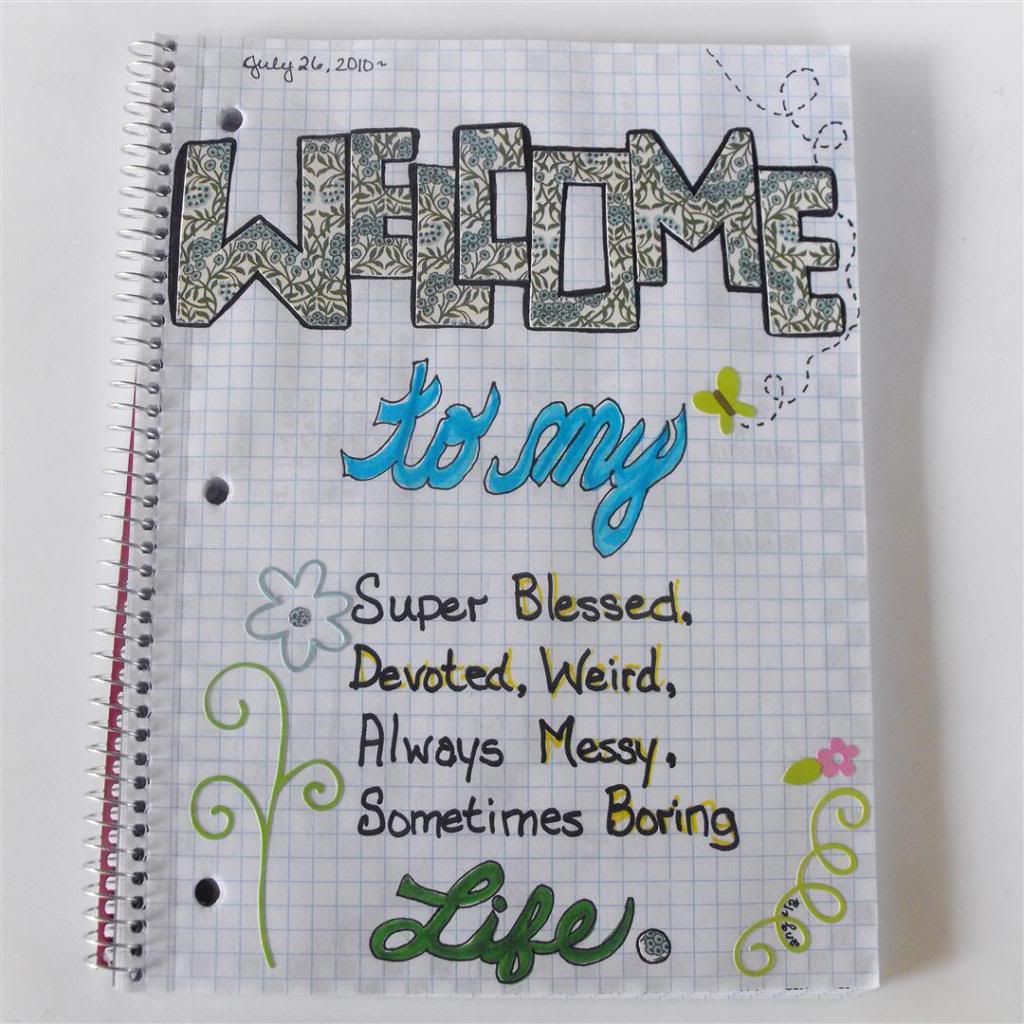 July 26, 2010~
WELCOME
to my
Super Blessed,
Devoted, Weird,
Always Messy,
Sometimes Boring
Life.